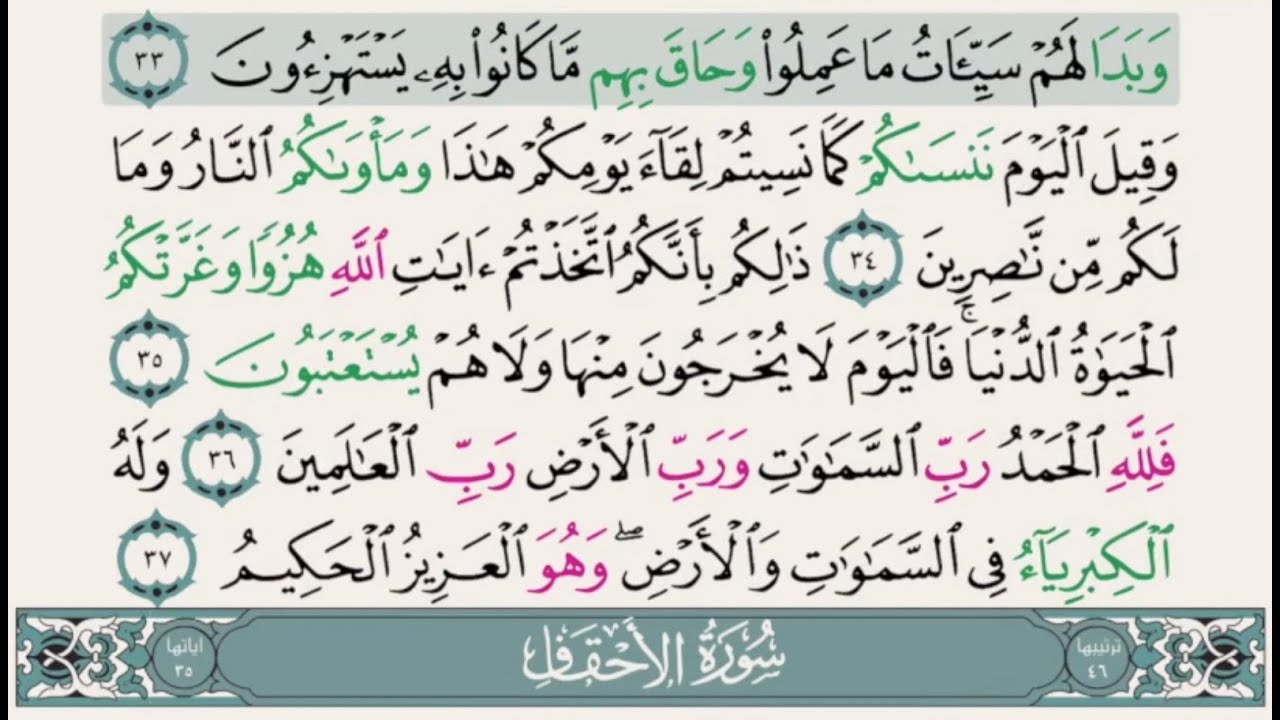 وَبَدَا لَهُمۡ سَيِّـَٔاتُ مَا عَمِلُواْ وَحَاقَ بِهِم مَّا كَانُواْ بِهِۦ يَسۡتَهۡزِءُونَ ٣٣
وَقِيلَ ٱلۡيَوۡمَ نَنسَىٰكُمۡ كَمَا نَسِيتُمۡ لِقَآءَ يَوۡمِكُمۡ هَٰذَا وَمَأۡوَىٰكُمُ ٱلنَّارُ وَمَا
لَكُم مِّن نَّٰصِرِينَ ٣٤ ذَٰلِكُم بِأَنَّكُمُ ٱتَّخَذۡتُمۡ ءَايَٰتِ ٱللَّهِ هُزُوٗا وَغَرَّتۡكُمُ
ٱلۡحَيَوٰةُ ٱلدُّنۡيَاۚ فَٱلۡيَوۡمَ لَا يُخۡرَجُونَ مِنۡهَا وَلَا هُمۡ يُسۡتَعۡتَبُونَ ٣٥
فَلِلَّهِ ٱلۡحَمۡدُ رَبِّ ٱلسَّمَٰوَٰتِ وَرَبِّ ٱلۡأَرۡضِ رَبِّ ٱلۡعَٰلَمِينَ ٣٦ وَلَهُ
ٱلۡكِبۡرِيَآءُ فِي ٱلسَّمَٰوَٰتِ وَٱلۡأَرۡضِۖ وَهُوَ ٱلۡعَزِيزُ ٱلۡحَكِيمُ ٣٧
ترتيبها ٤٦ سُورَةُ الأَحۡقَافِ اياتها ٣٥